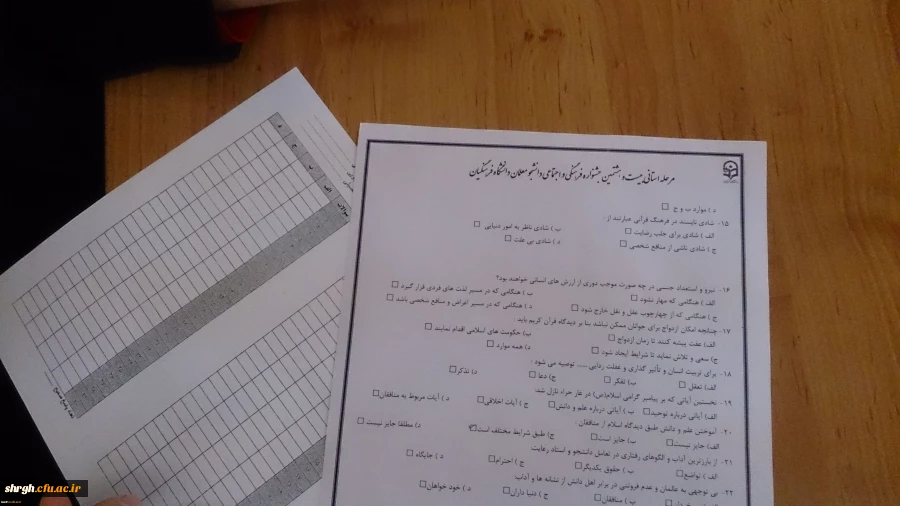 مرحله استانی بیست و هشتمین جشنواره فرهنگی و اجتماعی دانشجو معلمان دانشگاه فرهنگیان
د ) موارد ب و ج
۱۵- شادی بایسته در فرهنگ قرآنی عبارتند از :
الف ) شادی برای جلب رضایت ب ) شادی ناظر به امور دنیایی
ج ) شادی ناشی از منافع شخصی د ) شادی بی علت
۱۶- نیرو و استعداد جنسی در چه صورت موجب دوری از ارزش های انسانی خواهد بود؟
الف ) هنگامی که مهار نشود ب ) هنگامی که در مسیر لذت های فردی قرار گیرد
ج ) هنگامی که از چهارچوب عقل و نقل خارج شود د ) هنگامی که در مسیر اغراض و منافع شخصی باشد
۱۷- چنانچه امکان ازدواج برای جوانان ممکن نباشد بنا بر دیدگاه قرآن کریم باید
الف) عفت پیشه کنند تا زمان ازدواج ب) حکومت های اسلامی اقدام نمایند
ج) سعی و تلاش نماید تا شرایط ایجاد شود د) همه موارد
۱۸- برای تربیت انسان و تأثیر گذاری و غفلت زدایی ..... توصیه می شود :
الف) تعقل ب) تفکر ج) دعا د) تذکر
۱۹- نخستین آیاتی که بر پیامبر گرامی اسلام(ص) در غار حراء نازل شد.
الف) آیاتی درباره توحید ب ) آیاتی درباره علم و دانش ج ) آیات اخلاقی د ) آیات مربوط به منافقان
۲۰- آموختن علم و دانش طبق دیدگاه اسلام از منافقان :
الف) جایز نیست ب) جایز است ج) طبق شرایط مختلف است د) مطلقا جایز نیست
۲۱- از بارزترین آداب و الگوهای رفتاری در تعامل دانشجو و استاد رعایت
الف ) تواضع ب ) حقوق یکدیگر ج ) احترام د ) جایگاه
۲۲- بی توجهی به عالمان و عدم فروتنی در برابر اهل دانش از نشانه ها و آداب:
ب ) منافقان ج ) دنیا داران د ) خود خواهان
سوالات الف ب ج د
shrgh.cfu.ac.ir